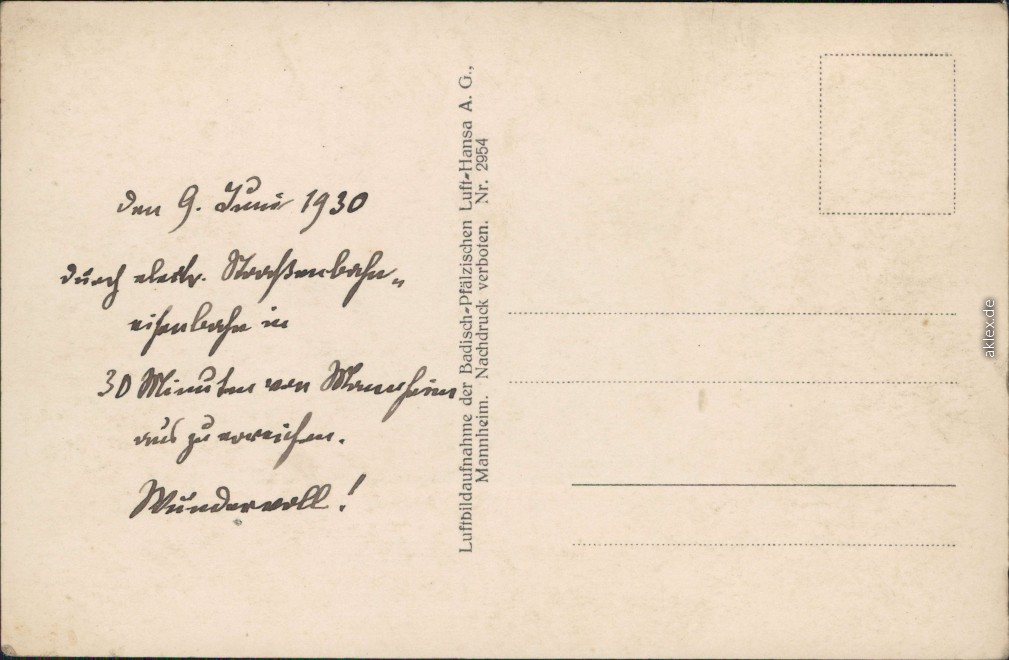 den 9. Juni 1930
durch elektr. Straßenbahn-
eisenbahn in
30 Minuten von Mannheim
aus zu erreichen.
Wundervoll!
Luftbildaufnahme der Badisch-Pfälzischen Luft-Hansa A. G.,
Mannheim. Nachdruck verboten. Nr. 2954
aklex.de